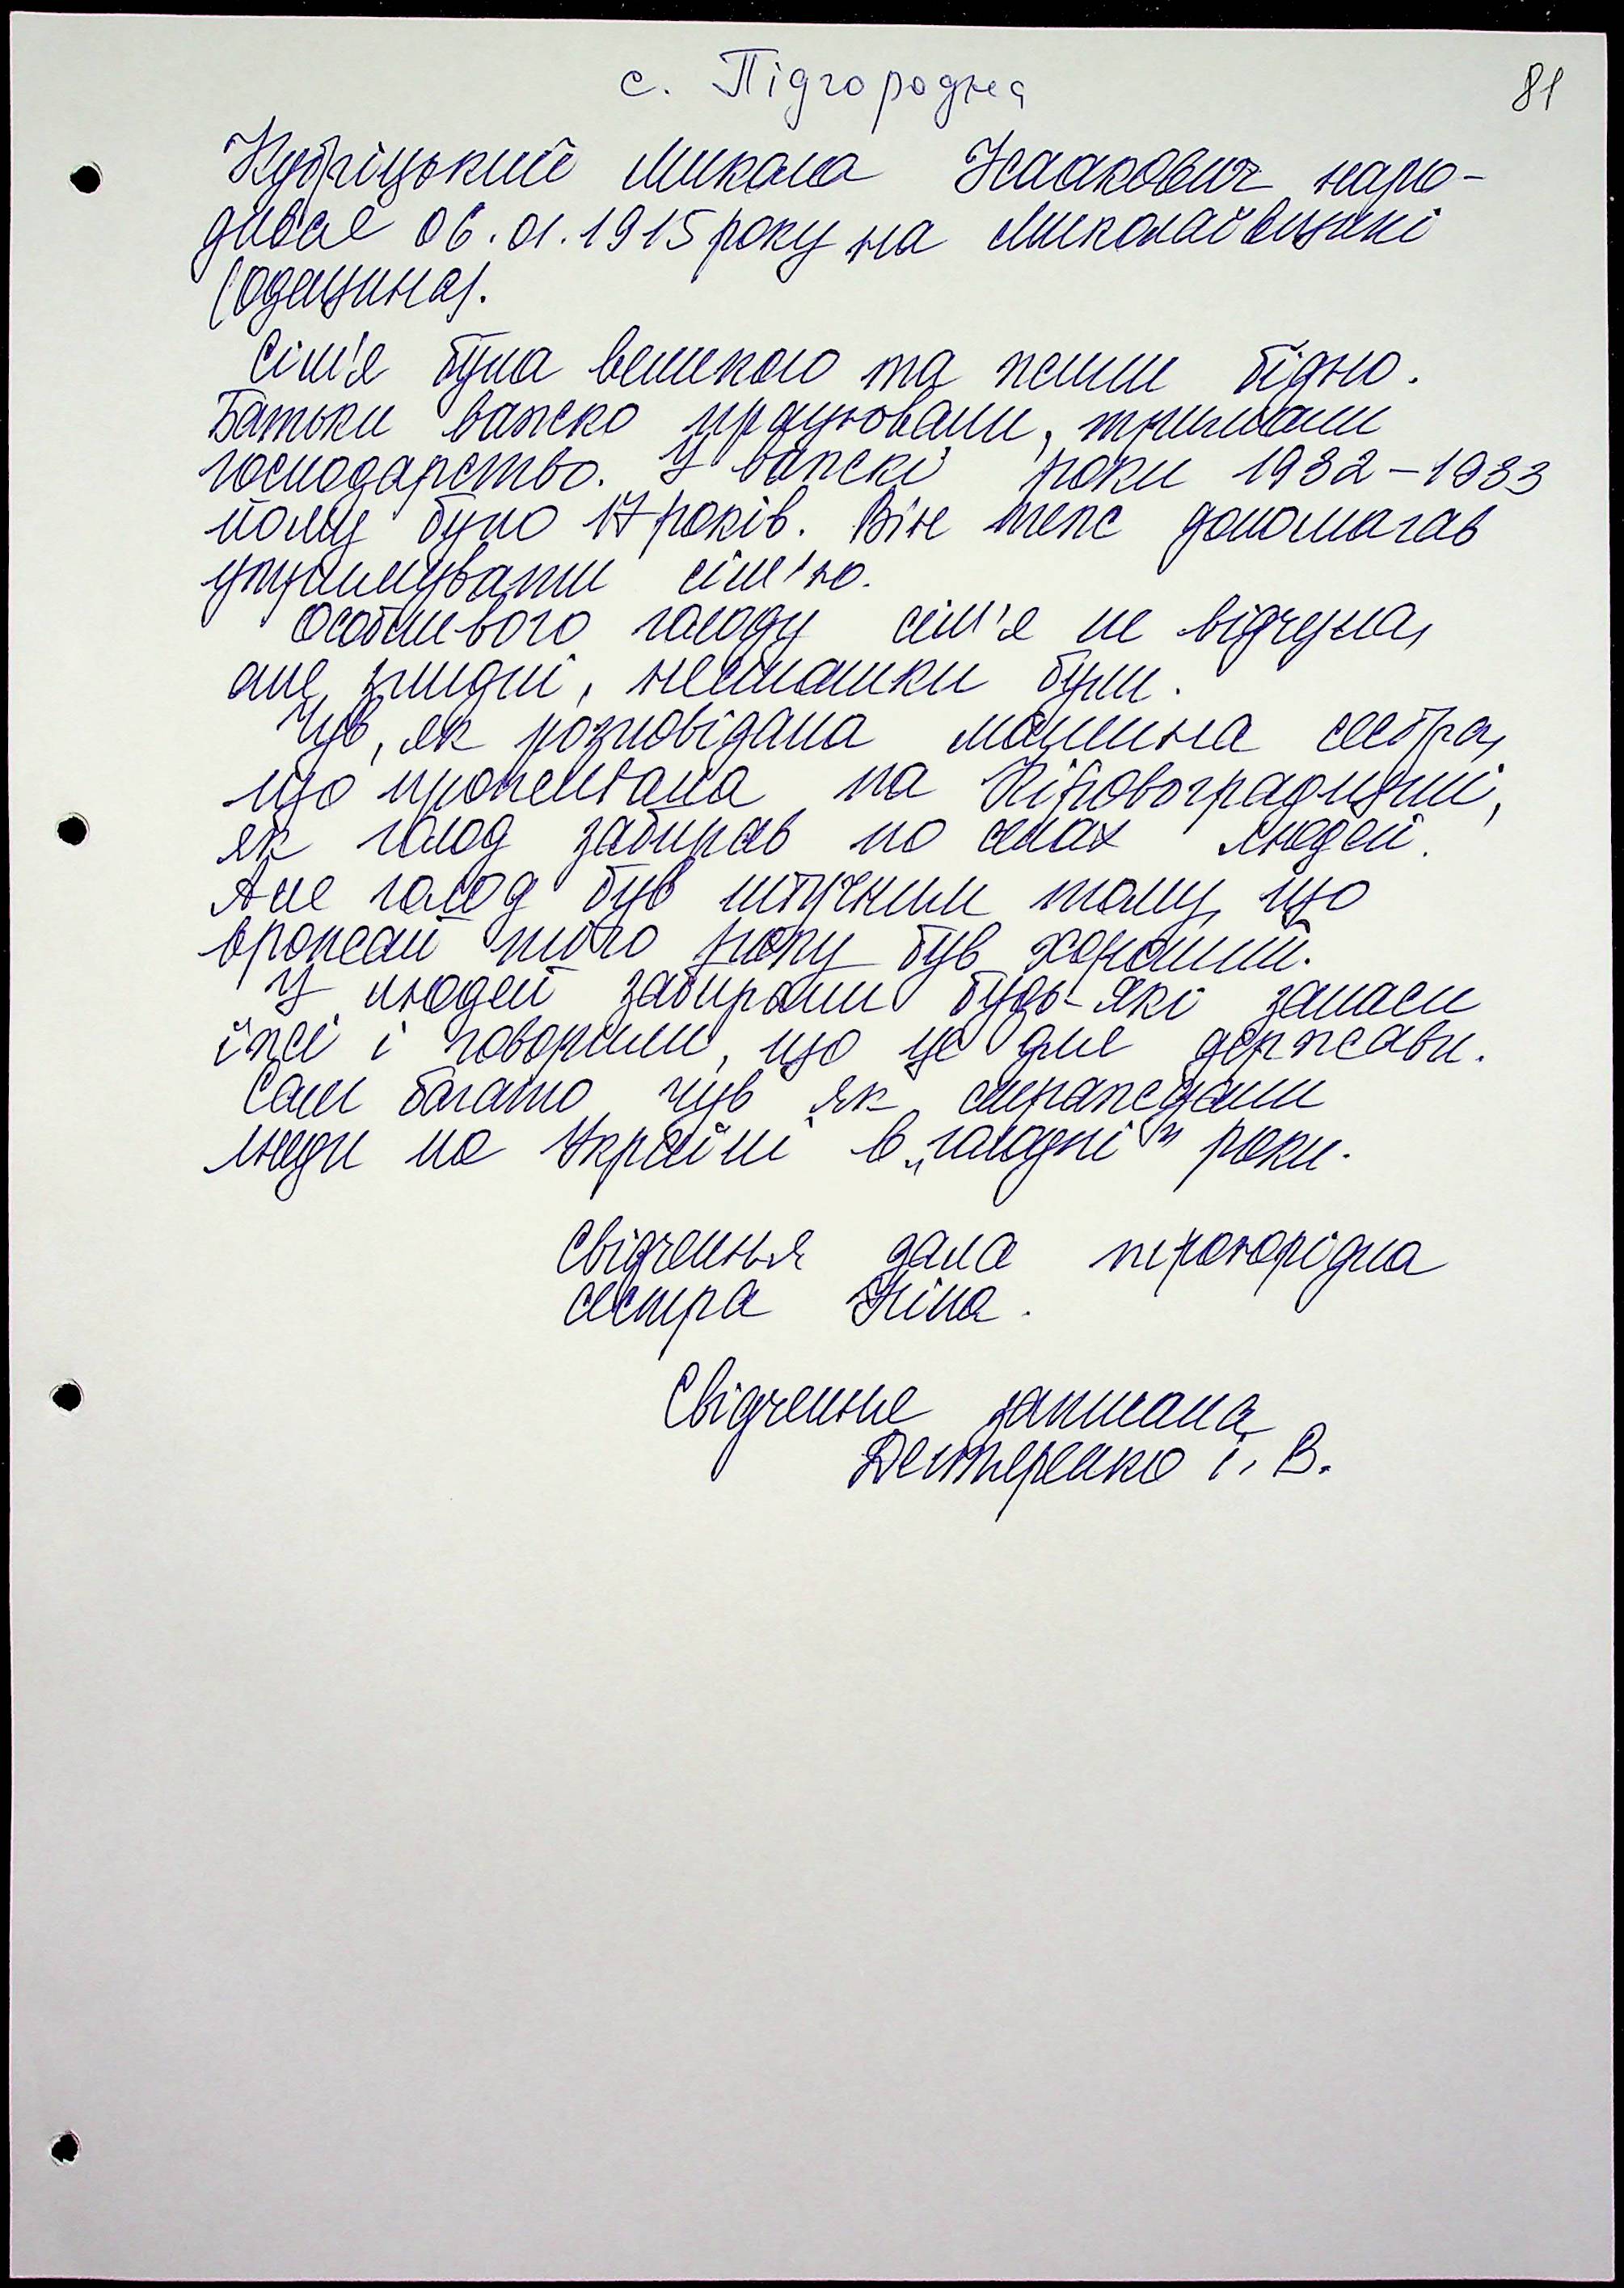 с. Підгородна
81
Кубріцький Микола Ісаакович наро-
дився 06.01.1915 року на Миколаївщині
(Одещина).
Сім'я була великою та жили бідно.
Батьки важко працювали, тримали
господарство. У важкі роки 1932-1933
йому було 17 років. Він теж допомагав
утримувати сім'ю.
Особливого голоду сім'я не відчула,
але злидні, нестатки були.
Чув, як розповідала мамина сестра,
що проживала на Кіровоградщині,
як голод забирав по селах людей.
Але голод був штучним тому, що
врожай того року був хороший.
У людей забирали будь-які запаси
їжі і говорили, що це для держави.
Сам багато чув як страждали
люди на Україні в „голодні" роки.
Свідчення дала троюрідна
сестра Ніна.
Свідчення записала
І. В.